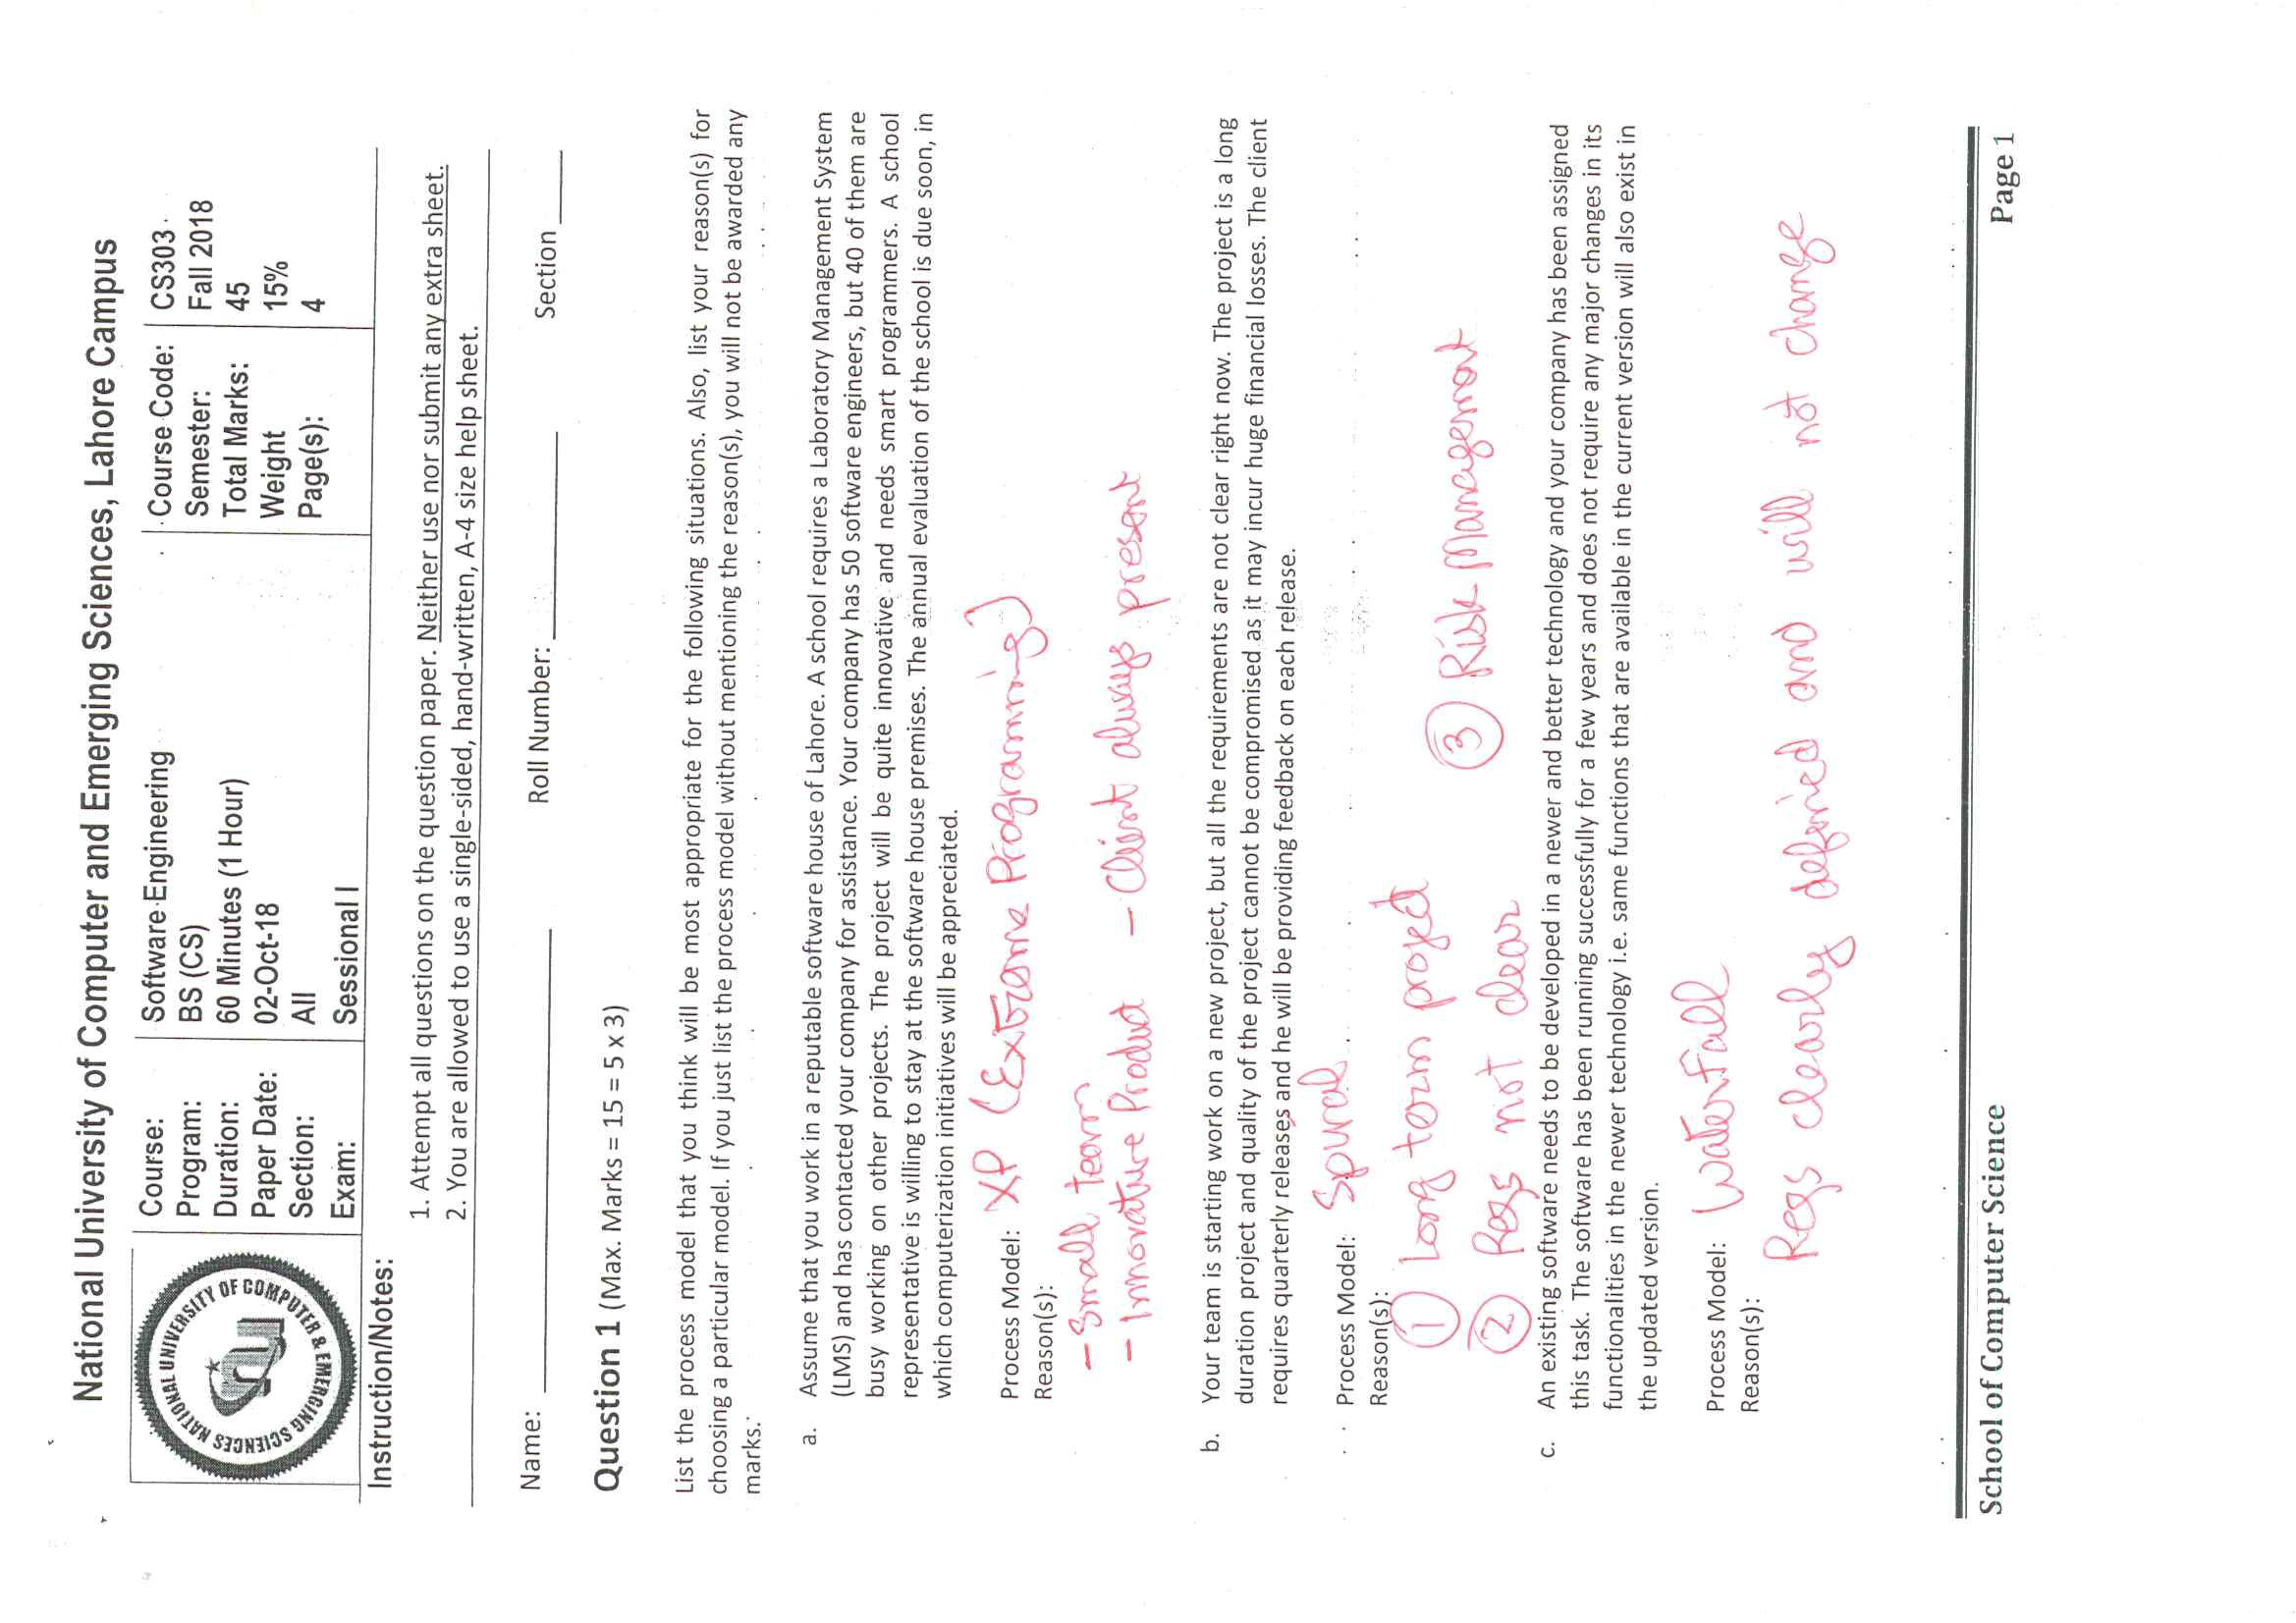 National University of Computer and Emerging Sciences, Lahore Campus
NATIONAL UNIVERSITY OF COMPUTER & EMERGING SCIENCES
Course: Software Engineering Course Code: CS303
Program: BS (CS) Semester: Fall 2018
Duration: 60 Minutes (1 Hour) Total Marks: 45
Paper Date: 02-Oct-18 Weight 15%
Section: All Page(s): 4
Exam: Sessional I
Instruction/Notes:
1. Attempt all questions on the question paper. Neither use nor submit any extra sheet.
2. You are allowed to use a single-sided, hand-written, A-4 size help sheet.
Name: Roll Number: Section
Question 1 (Max. Marks = 15 = 5 x 3)
List the process model that you think will be most appropriate for the following situations. Also, list your reason(s) for
choosing a particular model. If you just list the process model without mentioning the reason(s), you will not be awarded any
marks.
a. Assume that you work in a reputable software house of Lahore. A school requires a Laboratory Management System
(LMS) and has contacted your company for assistance. Your company has 50 software engineers, but 40 of them are
busy working on other projects. The project will be quite innovative and needs smart programmers. A school
representative is willing to stay at the software house premises. The annual evaluation of the school is due soon, in
which computerization initiatives will be appreciated.
Process Model: XP (Extreme Programming)
Reason(s):
- Small team
- Innovative Product - Client always present
b. Your team is starting work on a new project, but all the requirements are not clear right now. The project is a long
duration project and quality of the project cannot be compromised as it may incur huge financial losses. The client
requires quarterly releases and he will be providing feedback on each release.
Process Model: Spiral
Reason(s):
① Long term project ③ Risk Management
② Reqs not clear
c. An existing software needs to be developed in a newer and better technology and your company has been assigned
this task. The software has been running successfully for a few years and does not require any major changes in its
functionalities in the newer technology i.e. same functions that are available in the current version will also exist in
the updated version.
Process Model: WaterFall
Reason(s):
Reqs clearly defined and will not change
School of Computer Science Page 1